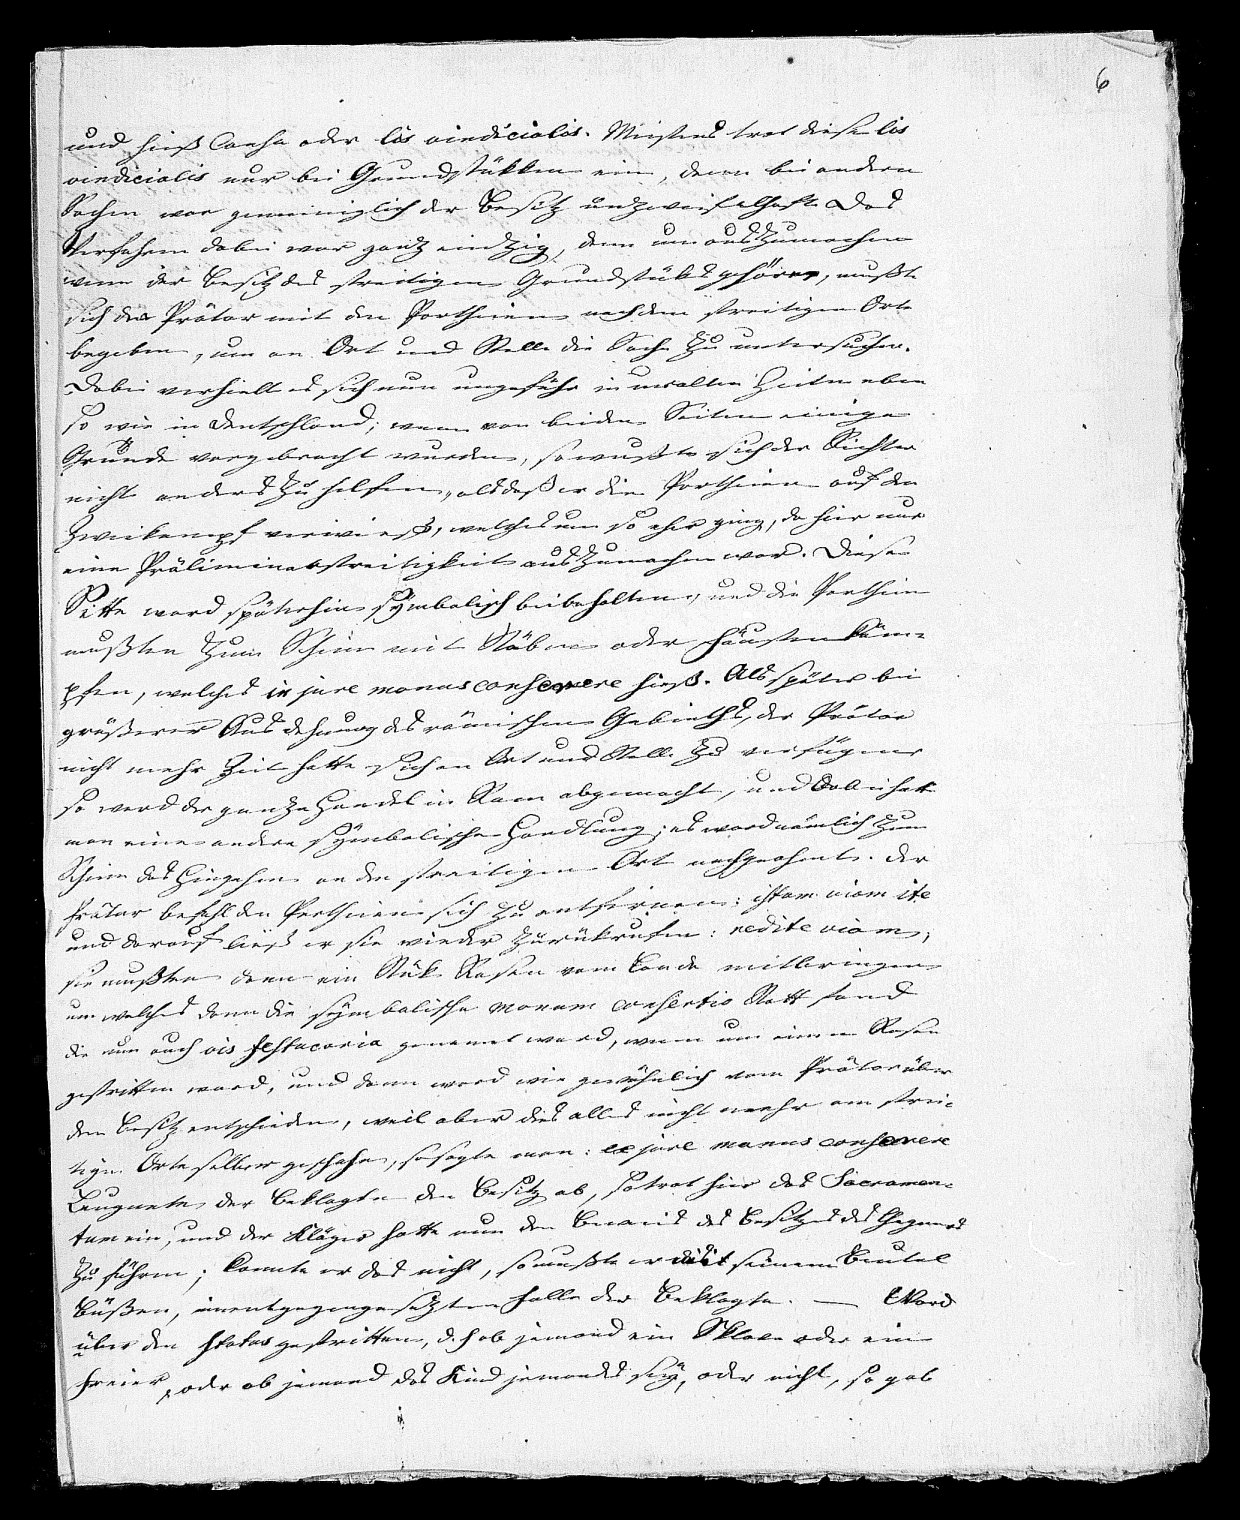 6
und hieß Causa oder lis vindicialis. Meistens trat diese lis
vindicialis nur bei Grundstükken ein, denn bei andern
Sachen war gemeiniglich der Besitz unzweifelhaft. Das
Verfahren dabei war ganz eintzig, denn um auszumachen
wem der Besitz des streitigen Grundstüks gehöre, mußte
sich der Prätor mit den Partheien nach dem streitigen Orte
begeben, um an Ort und Stelle die Sache zu untersuchen.
Dabei verhielt es sich nun ungefähr in uralten Zeiten eben
so wie in Deutschland; wenn von beiden Seiten einige
Gründe vorgebracht wurden, so wußte sich der Richter
nicht anders zu helfen, als daß er die Partheien auf den
Zweikampf verwieß, welches um so eher ging, da hier nur
eine Präliminarstreitigkeit auszumachen war. Diese
Sitte ward späterhin symbolisch beibehalten, und die Partheien
mußten zum Schein mit Stäben oder Fäusten käm-
pfen, welches in jure manus conserere hieß. Als später bei
größerer Ausdehnung des römischen Gebieths, der Prätor
nicht mehr Zeit hatte sich an Ort und Stelle zu verfügen
so ward der ganze Handel in Rom abgemacht, und dabei hatte
man eine andere symbolische Handlung; es ward nämlich zum
Schein das Hingehen an den streitigen Ort nachgeahmt. Der
Prätor befahl den Partheien sich zu entfernen: istam viam ite
und darauf ließ er sie wieder zurükrufen: redite viam,
sie mußten dann ein Stük Rasen vom Lande mitbringen
um welches dann die symbolische manum consertio Statt fand
die nun auch vis festucaria genannt ward, wenn um einen Rasen
gestritten ward, und dann ward wie gewöhnlich vom Prätor über
den Besitz entschieden, weil aber dies alles nicht mehr am strei-
tigen Orte selber geschahe, so sagte man: ex jure manus conserere
Leugnete der Beklagte den Besitz ab, so trat hier das Sacramen-
tum ein, und der Kläger hatte nun den Beweis des Besitzes des Gegners
zu führen; konnte er das nicht, so mußte er mit seinem Beutel
büßen, im entgegengesetzten Falle der Beklagte. — Ward
über den status gestritten, d. h ob jemand ein Sklave oder ein
Freier, oder ob jemand das Kind jemandes sey, oder nicht, so gab